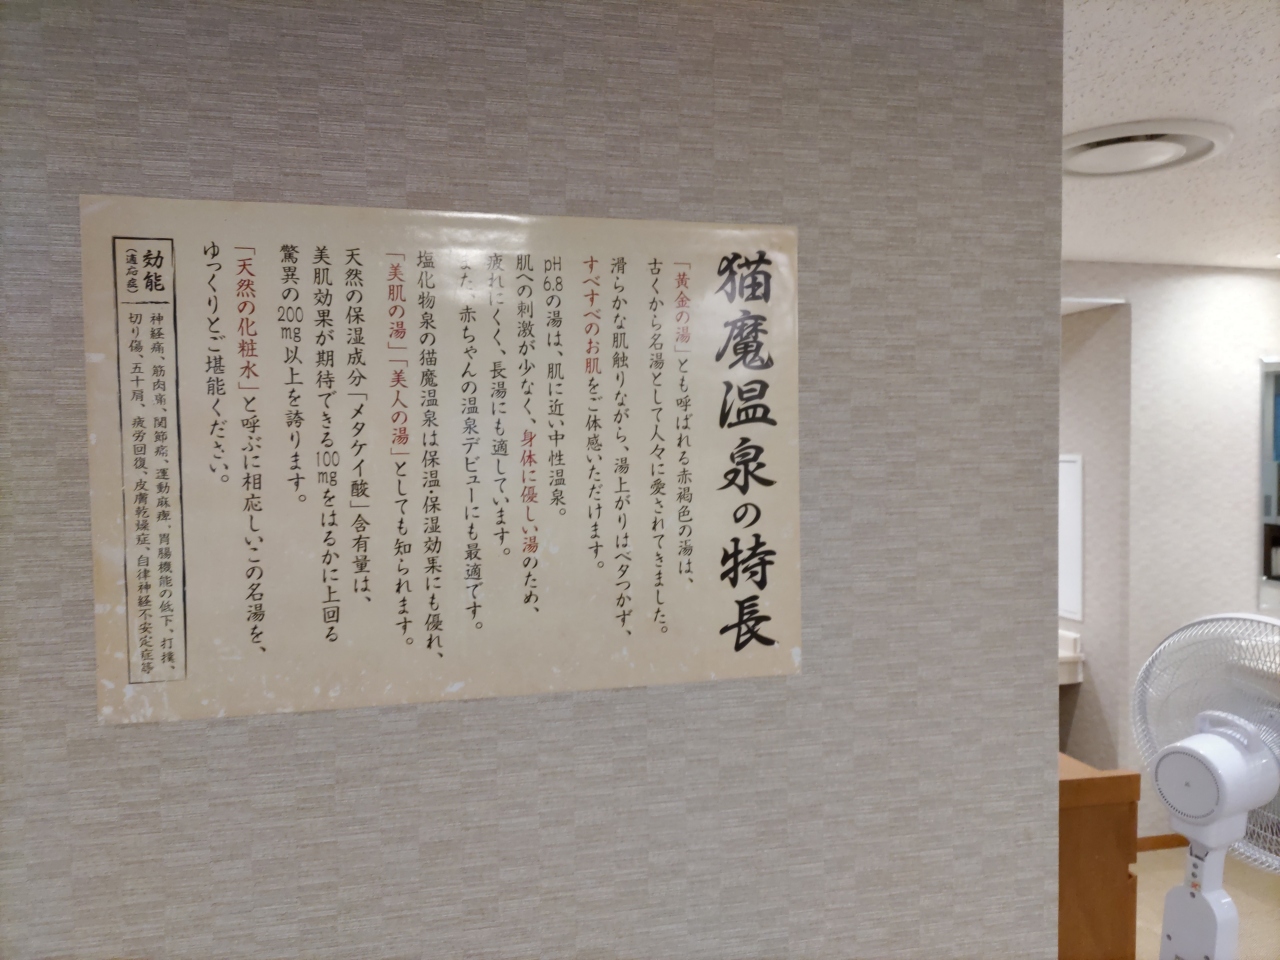 猫魔温泉の特長
「黄金の湯」とも呼ばれる赤褐色の湯は、
古くから名湯として人々に愛されてきました。
滑らかな肌触りながら、湯上がりはベタつかず、
すべすべのお肌をご体感いただけます。
pH6.8の湯は、肌に近い中性温泉。
肌への刺激が少なく、身体に優しい湯のため、
疲れにくく、長湯にも適しています。
また、赤ちゃんの温泉デビューにも最適です。
塩化物泉の猫魔温泉は保温・保湿効果にも優れ、
「美肌の湯」「美人の湯」としても知られます。
天然の保湿成分「メタケイ酸」含有量は、
美肌効果が期待できる100mgをはるかに上回る
驚異の200mg以上を誇ります。
「天然の化粧水」と呼ぶに相応しいこの名湯を、
ゆっくりとご堪能ください。
効能
(適応症)
神経痛、筋肉痛、関節痛、運動麻痺、胃腸機能の低下、打撲、
切り傷、五十肩、疲労回復、皮膚乾燥症、自律神経不安定症等